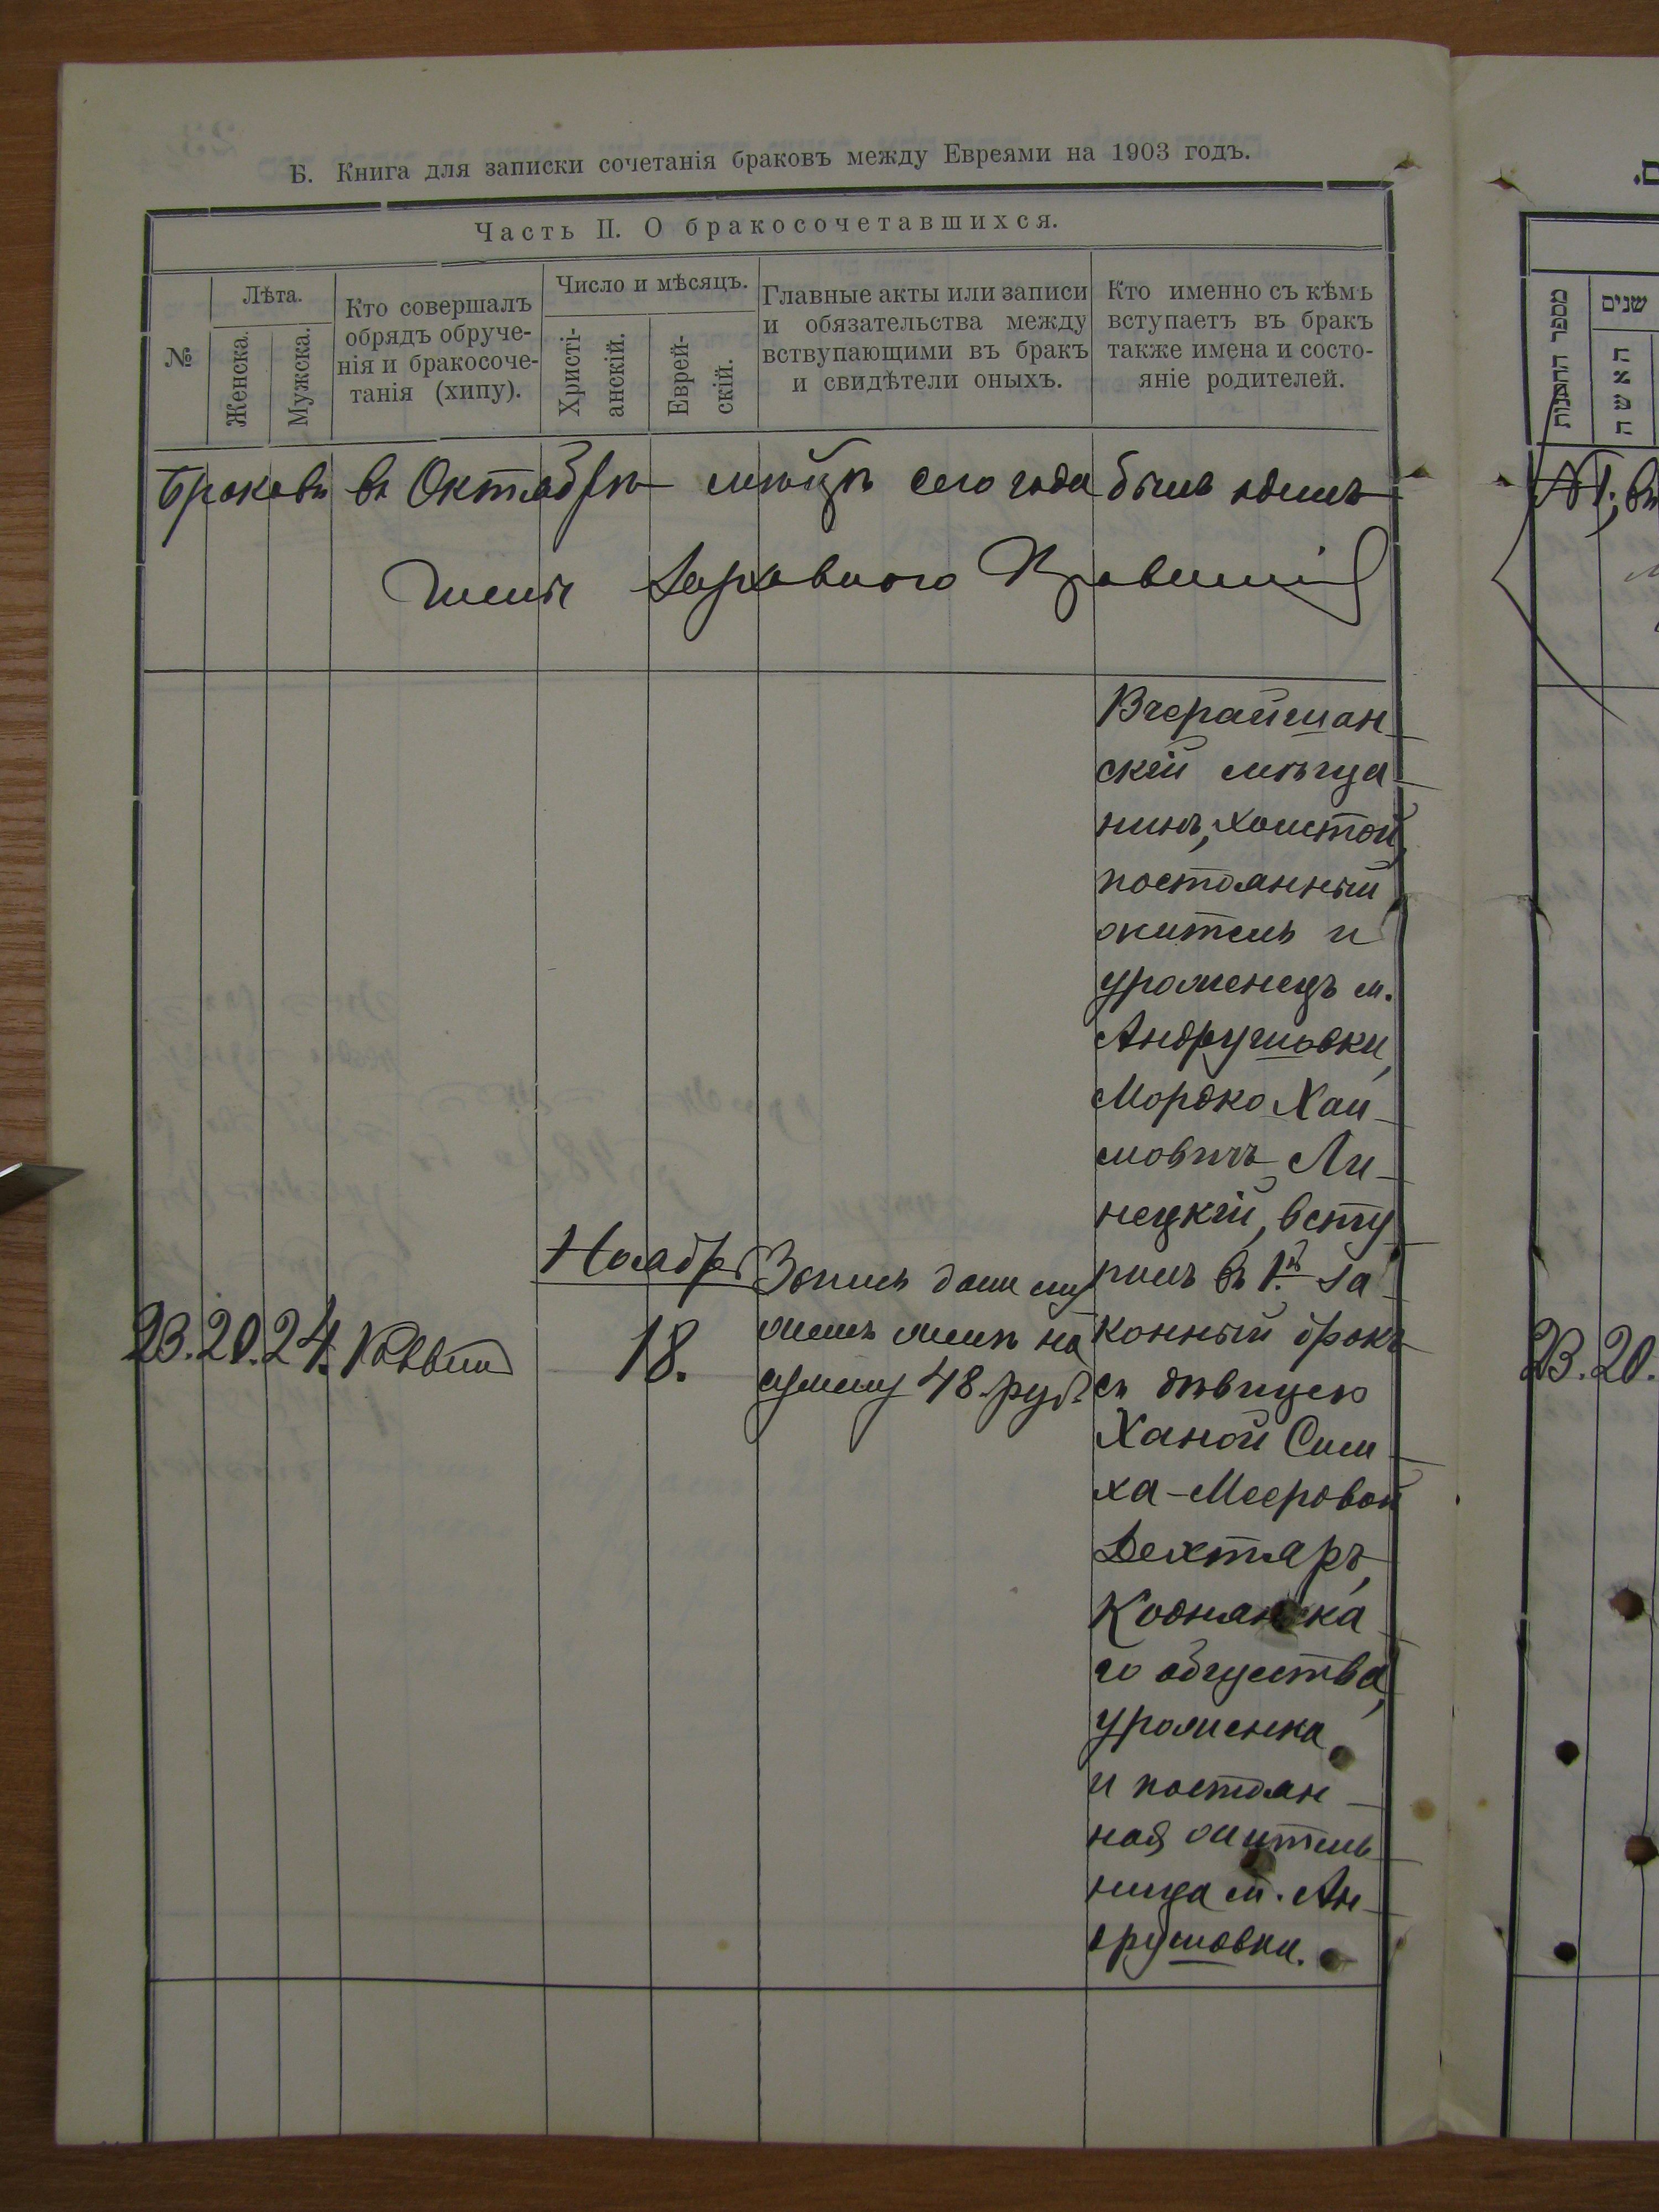 Б. Книга для записки сочетанія браковъ между Евреями на 1903 годъ.
Часть II. О бракосочетавшихся.
№
Лѣта.
Женска.
Мужска.
Кто совершалъ
обрядъ обруче-
нія и бракосоче-
танія (хипу).
Число и мѣсяцъ.
Христі-
анскій.
Еврей-
скій.
Главные акты или записи
и обязательства между
вствупающими въ бракъ
и свидѣтели оныхъ.
Кто именно съ кѣмъ
вступаетъ въ бракъ
также имена и состо-
яніе родителей.
Браковъ въ Октябрѣ мѣсяцѣ сего года былъ одинъ
Членъ Духовного Правленія
23. 20. 24. Раввин
Ноябр
18.
Запись дана му
жемъ женѣ на
сумму 48 руб.
Вчерайшан
скій мѣща
нинъ, холостой,
постоянный
житель и
уроженецъ м.
Андрушовки,
Мордко Хаи
мовичъ Ли
нецкій, всту
пилъ въ 1.й за
конный бракъ
съ дѣвицею
Ханой Сим
ха-Мееровой
Дехтяръ,
Коднянска
го общества,
уроженка
и постоян
ная житель
ница м. Ан
друшовки.
מספר החתנות
שנים
האשה
23. 20.